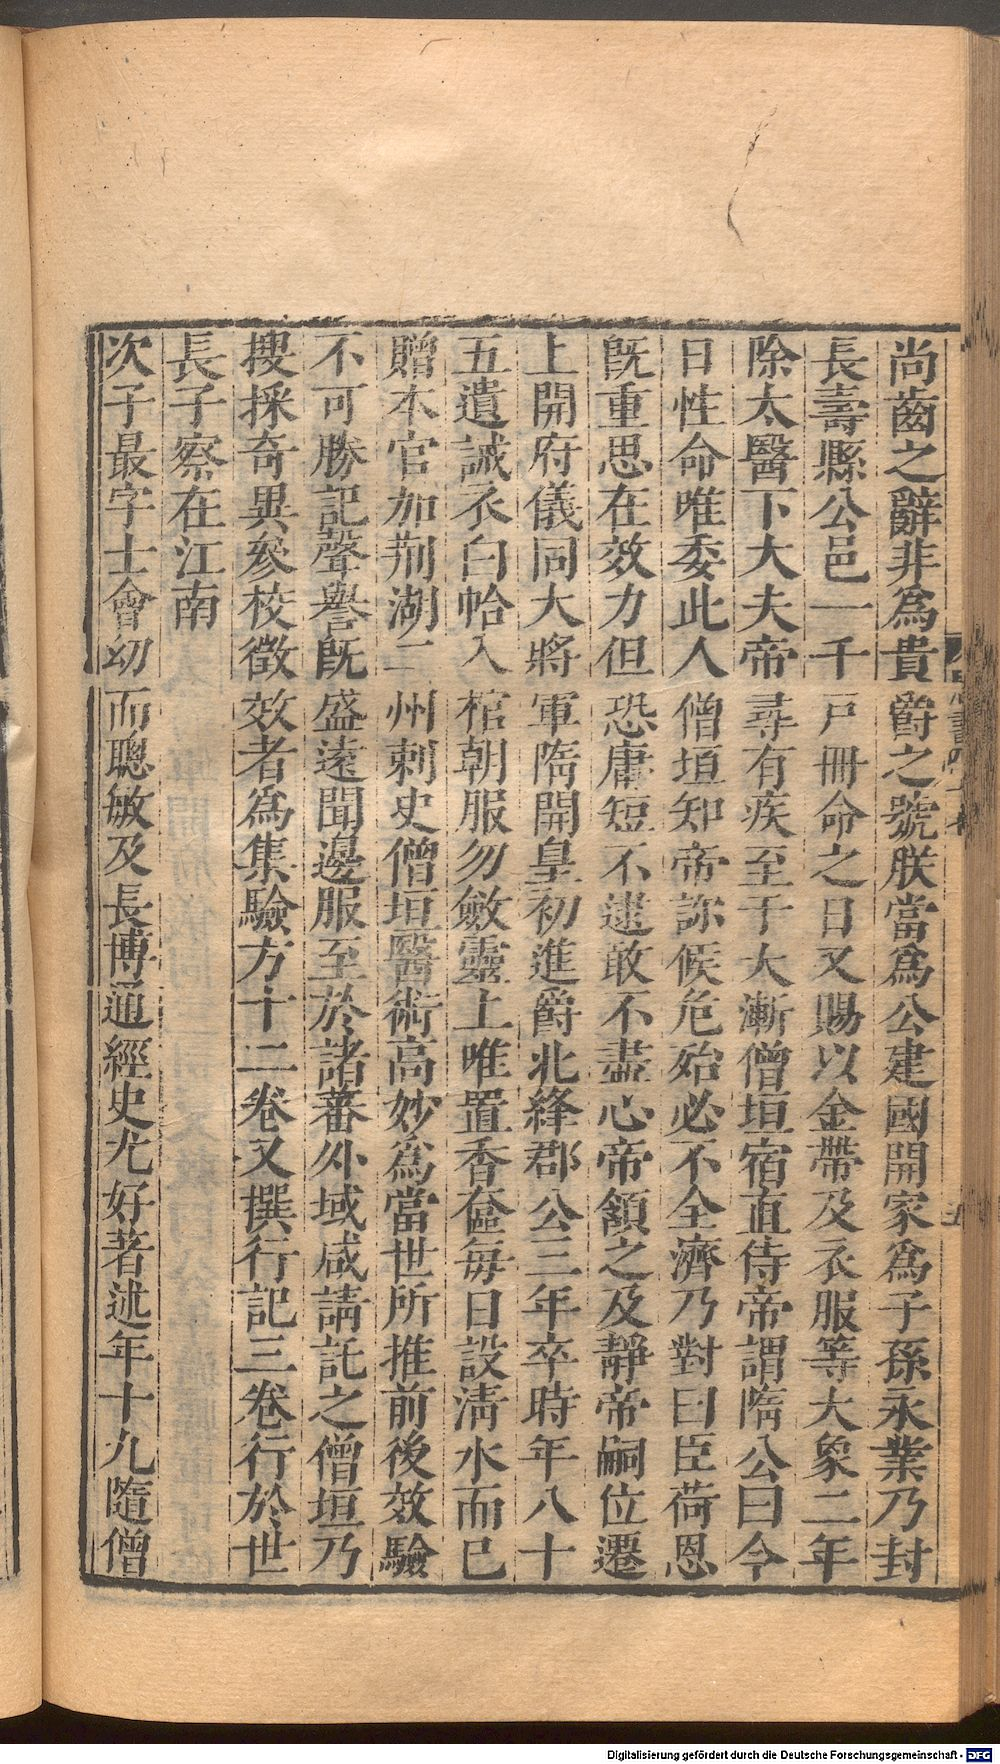 尚齒之辭非爲貴爵之號朕當爲公建國開家爲子孫永業乃封
長壽縣公邑一千戸冊命之日又賜以金帶及衣服等大象二年
除太醫下大夫帝尋有疾至于大漸僧垣宿直侍帝謂隋公曰今
日性命唯委此人僧垣知帝診候危殆必不全濟乃對曰臣荷恩
旣重思在效力但恐庸短不逮敢不盡心帝頷之及靜帝嗣位遷
上開府儀同大將軍隋開皇初進爵北絳郡公三年卒時年八十
五遺誡衣白帢入棺朝服勿斂靈上唯置香奩每日設淸水而已
贈本官加荆湖二州刺史僧垣醫術高妙爲當世所推前後效驗
不可勝記聲譽旣盛遠聞邊服至於諸蕃外域咸請託之僧垣乃
搜採奇異叅校徵效者爲集驗方十二卷又撰行記三卷行於世
長子察在江南
次子最字士會幼而聰敏及長博通經史尤好著述年十九隨僧
Digitalisierung gefördert durch die Deutsche Forschungsgemeinschaft - DFG